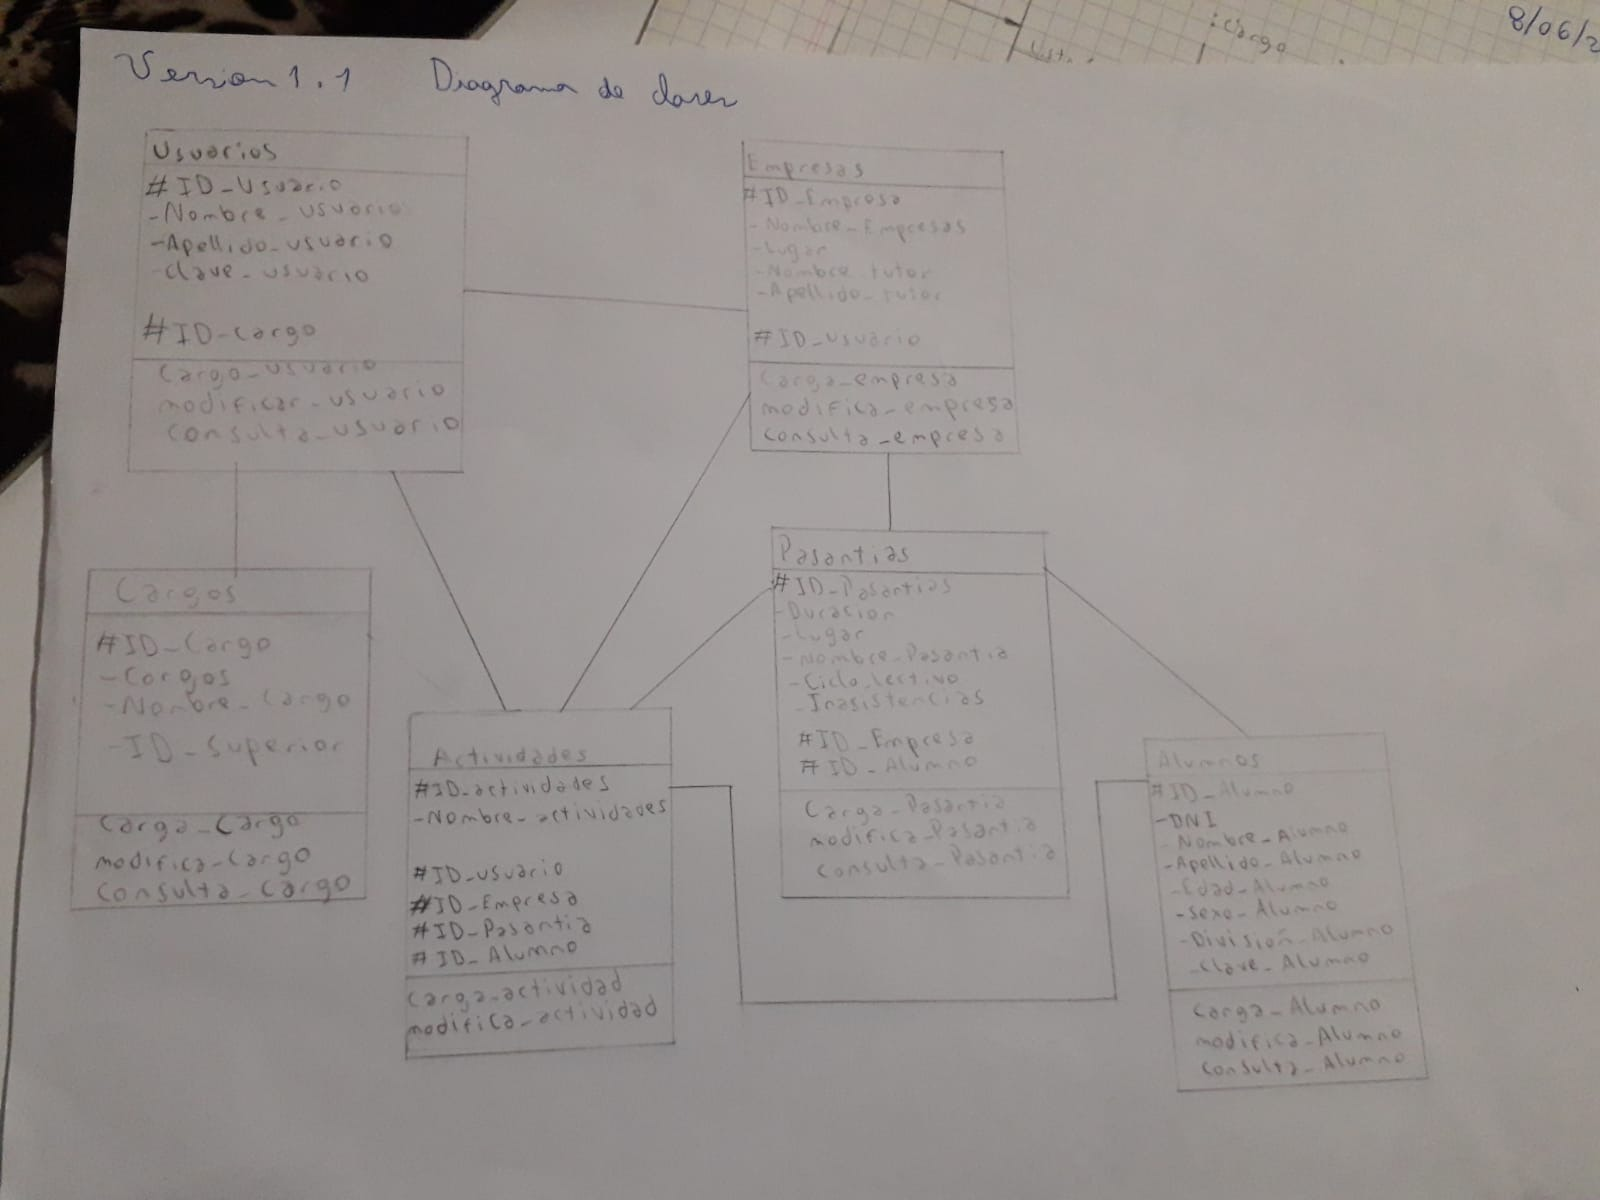 8/06/2
:Cargo
Version 1.1 Diagrama de clases
Usuarios
#ID_Usuario
-Nombre_usuario
-Apellido_usuario
-Clave_usuario
#ID_Cargo
Cargo_usuario
modificar_usuario
Consulta_usuario
Empresas
#ID_Empresa
-Nombre_Empresas
-Lugar
-Nombre_tutor
-Apellido_tutor
#ID_usuario
Carga_empresa
modifica_empresa
Consulta_empresa
Cargos
#ID_Cargo
-Cargos
-Nombre_Cargo
-ID_Superior
Carga_Cargo
modifica_Cargo
Consulta_Cargo
Pasantias
#ID_Pasantias
-Duracion
-Lugar
-Nombre_Pasantia
-Ciclo_lectivo
-Inasistencias
#ID_Empresa
#ID_Alumno
Carga_Pasantia
modifica_Pasantia
Consulta_Pasantia
Actividades
#ID_actividades
-Nombre_actividades
#ID_usuario
#ID_Empresa
#ID_Pasantia
#ID_Alumno
Carga_actividad
modifica_actividad
Alumnos
#ID_Alumno
-DNI
-Nombre_Alumno
-Apellido_Alumno
-Edad_Alumno
-Sexo_Alumno
-División_Alumno
-Clave_Alumno
Carga_Alumno
modifica_Alumno
Consulta_Alumno